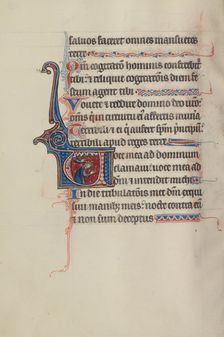 saluos faceret omnes mansuetos
terre
Qm̄ cogitatio hominis confitebr̄
tibi ⁊ reliquie cogitatiōis diem fe
stum agent tibi
Vouete ⁊ reddite domino deo vr̄o
om̄s qui in circuitu ei affertis muna
Terribili ⁊ ei qui aufert sp̄m p̄ncipū
terribili apud reges terre
Uoce mea ad dominum
clamaui uoce mea ad
⁊ intendit michi
In die tribulatōis mee dm̄ exqui
siui manib; meis nocte contra eū
⁊ non sum deceptus